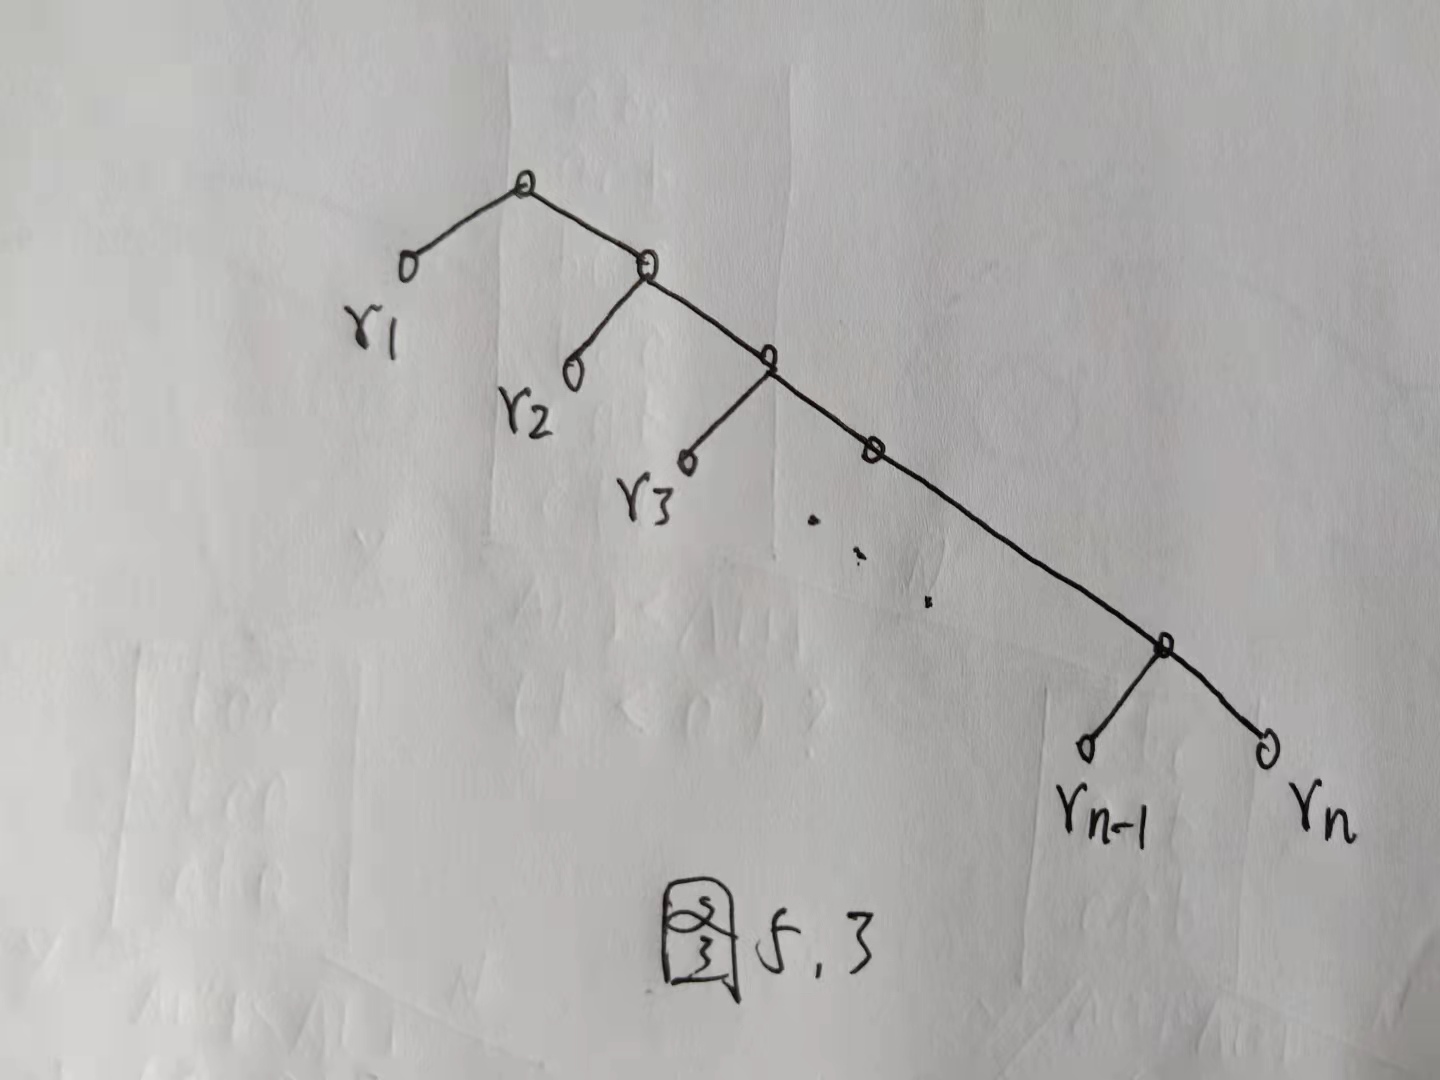 r1
r2
r3
rn-1
rn
图 5.3